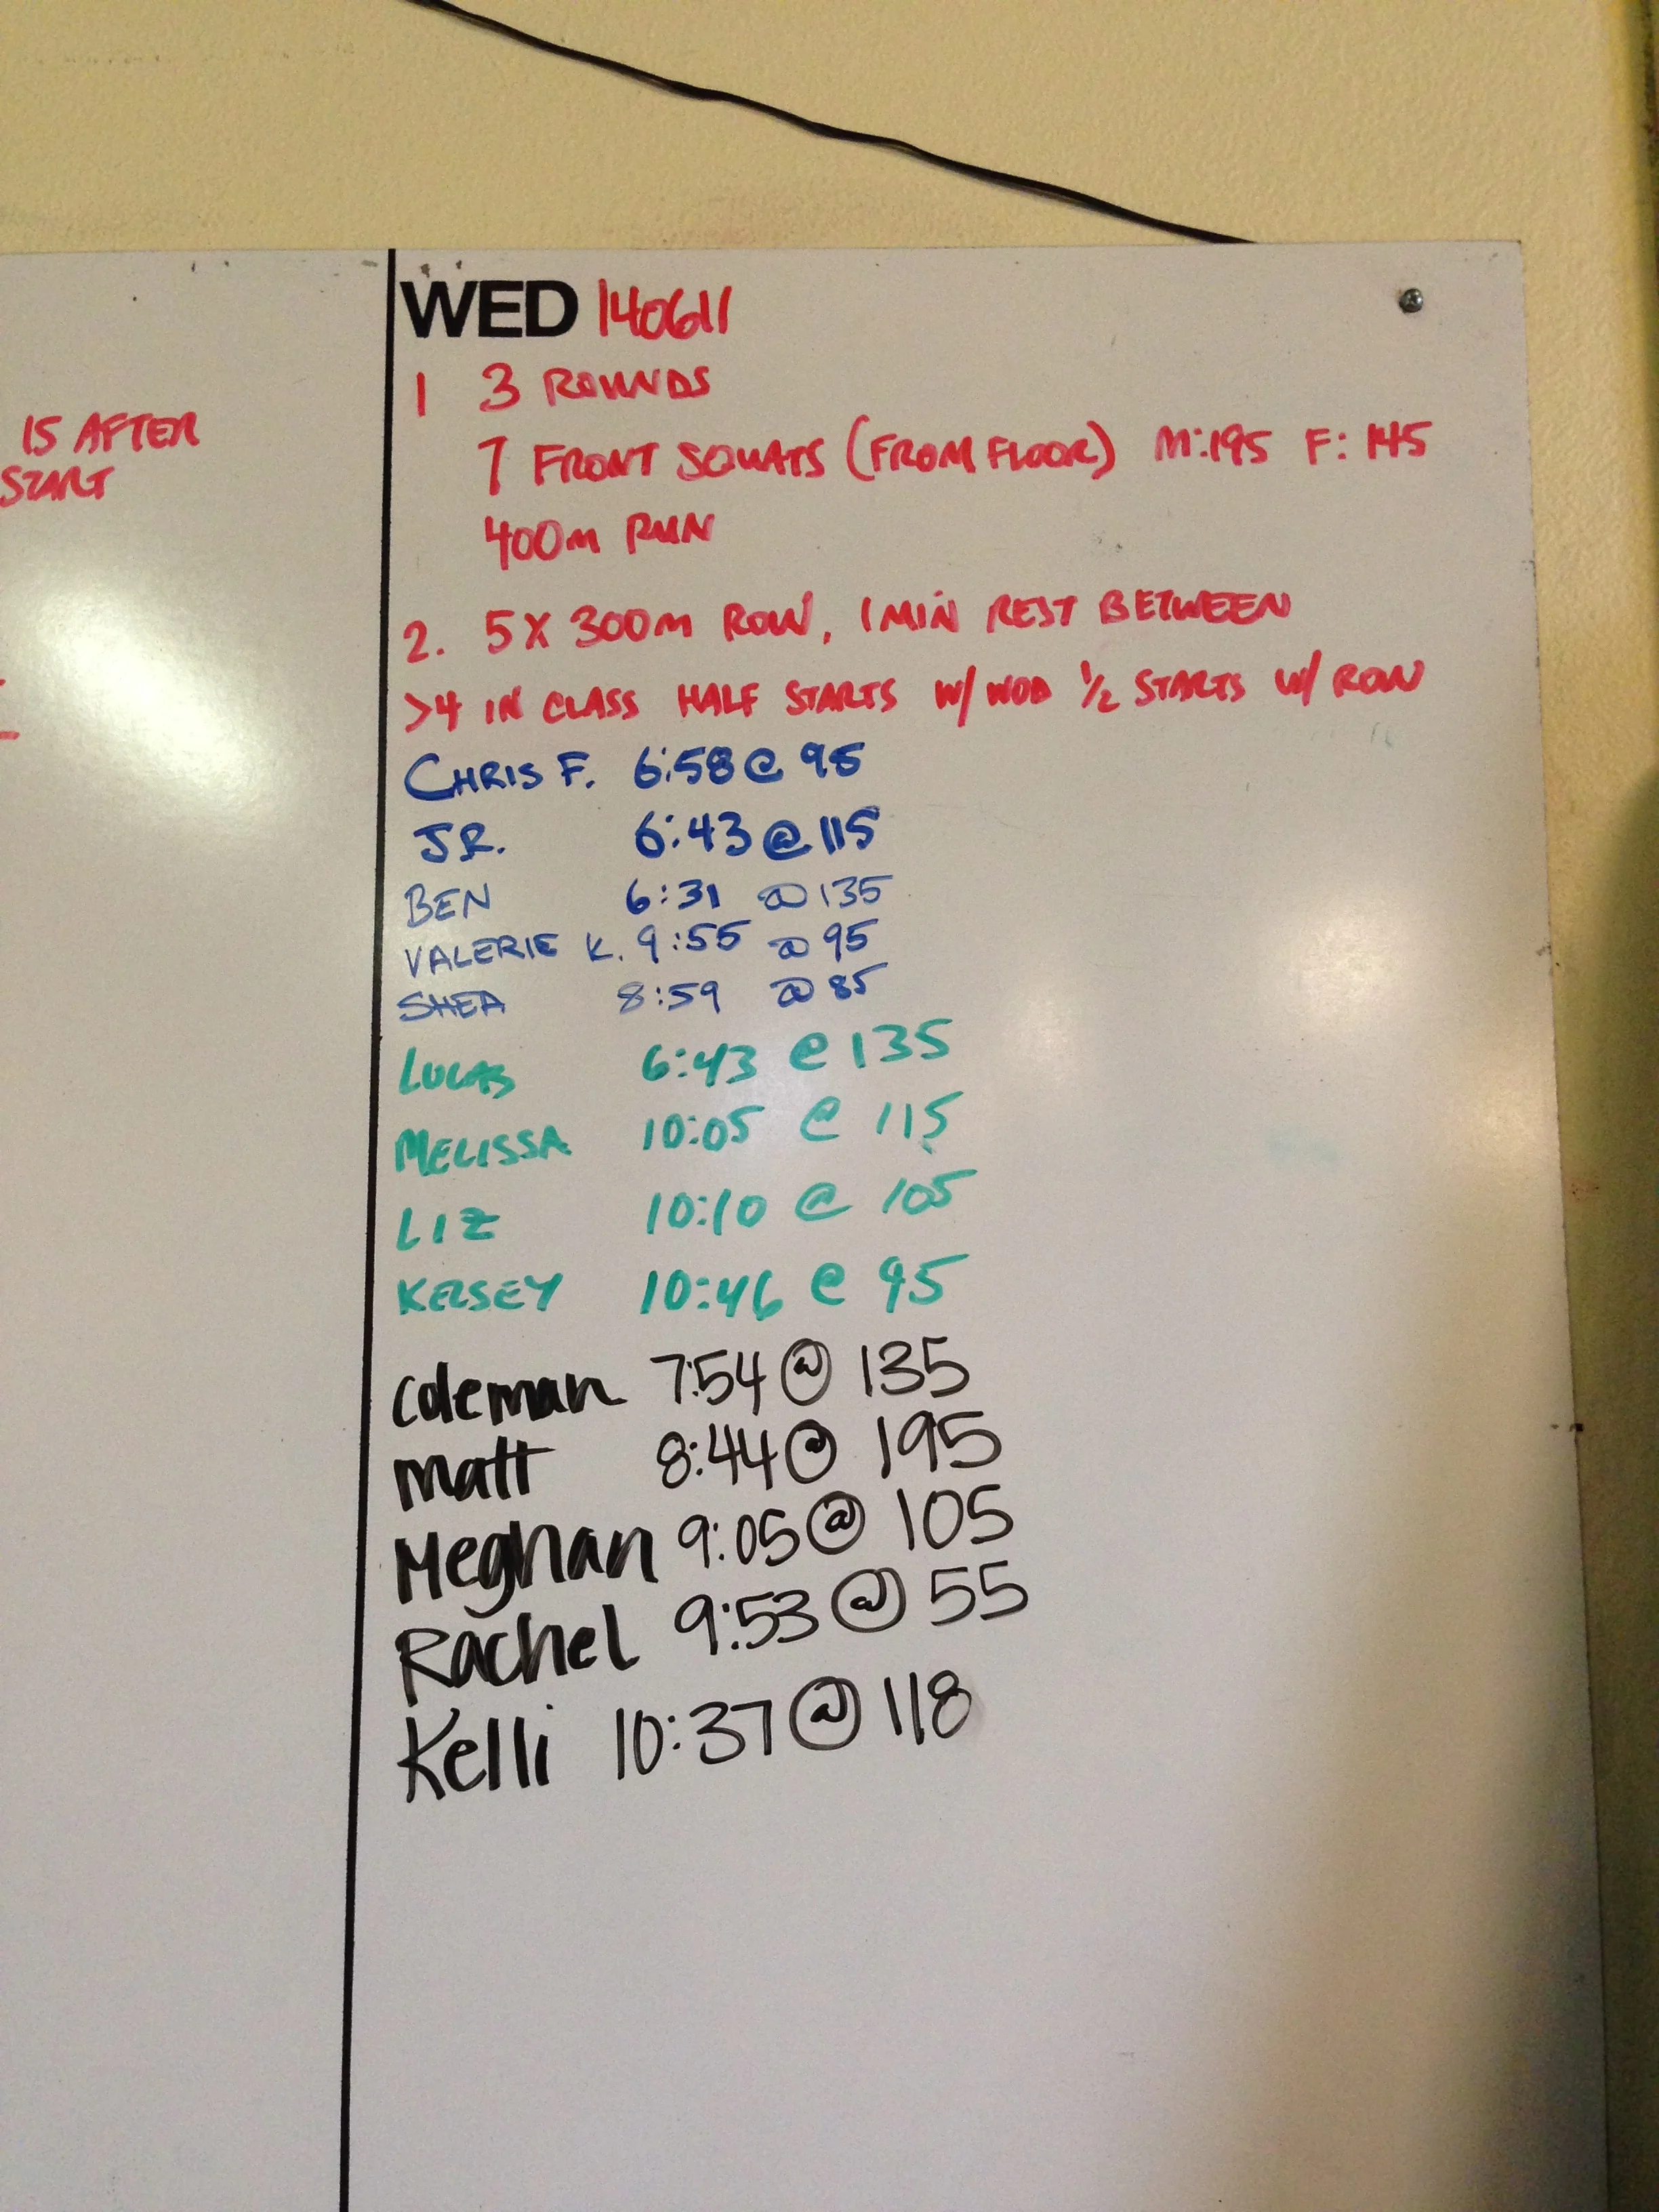 15 AFTER
START
WED 140611
1 3 ROUNDS
7 FRONT SQUATS (FROM FLOOR) M:195 F: 145
400m RUN
2. 5X 300m ROW, 1 MIN REST BETWEEN
>4 IN CLASS HALF STARTS W/ WOD 1/2 STARTS W/ ROW
CHRIS F. 6:58 @ 95
JR. 6:43 @ 115
BEN 6:31 @ 135
VALERIE K. 9:55 @ 95
SHEA 8:59 @ 85
LUCAS 6:43 @ 135
MELISSA 10:05 @ 115
LIZ 10:10 @ 105
KELSEY 10:46 @ 95
Coleman 7:54 @ 135
Matt 8:44 @ 195
Meghan 9:05 @ 105
Rachel 9:53 @ 55
Kelli 10:37 @ 118